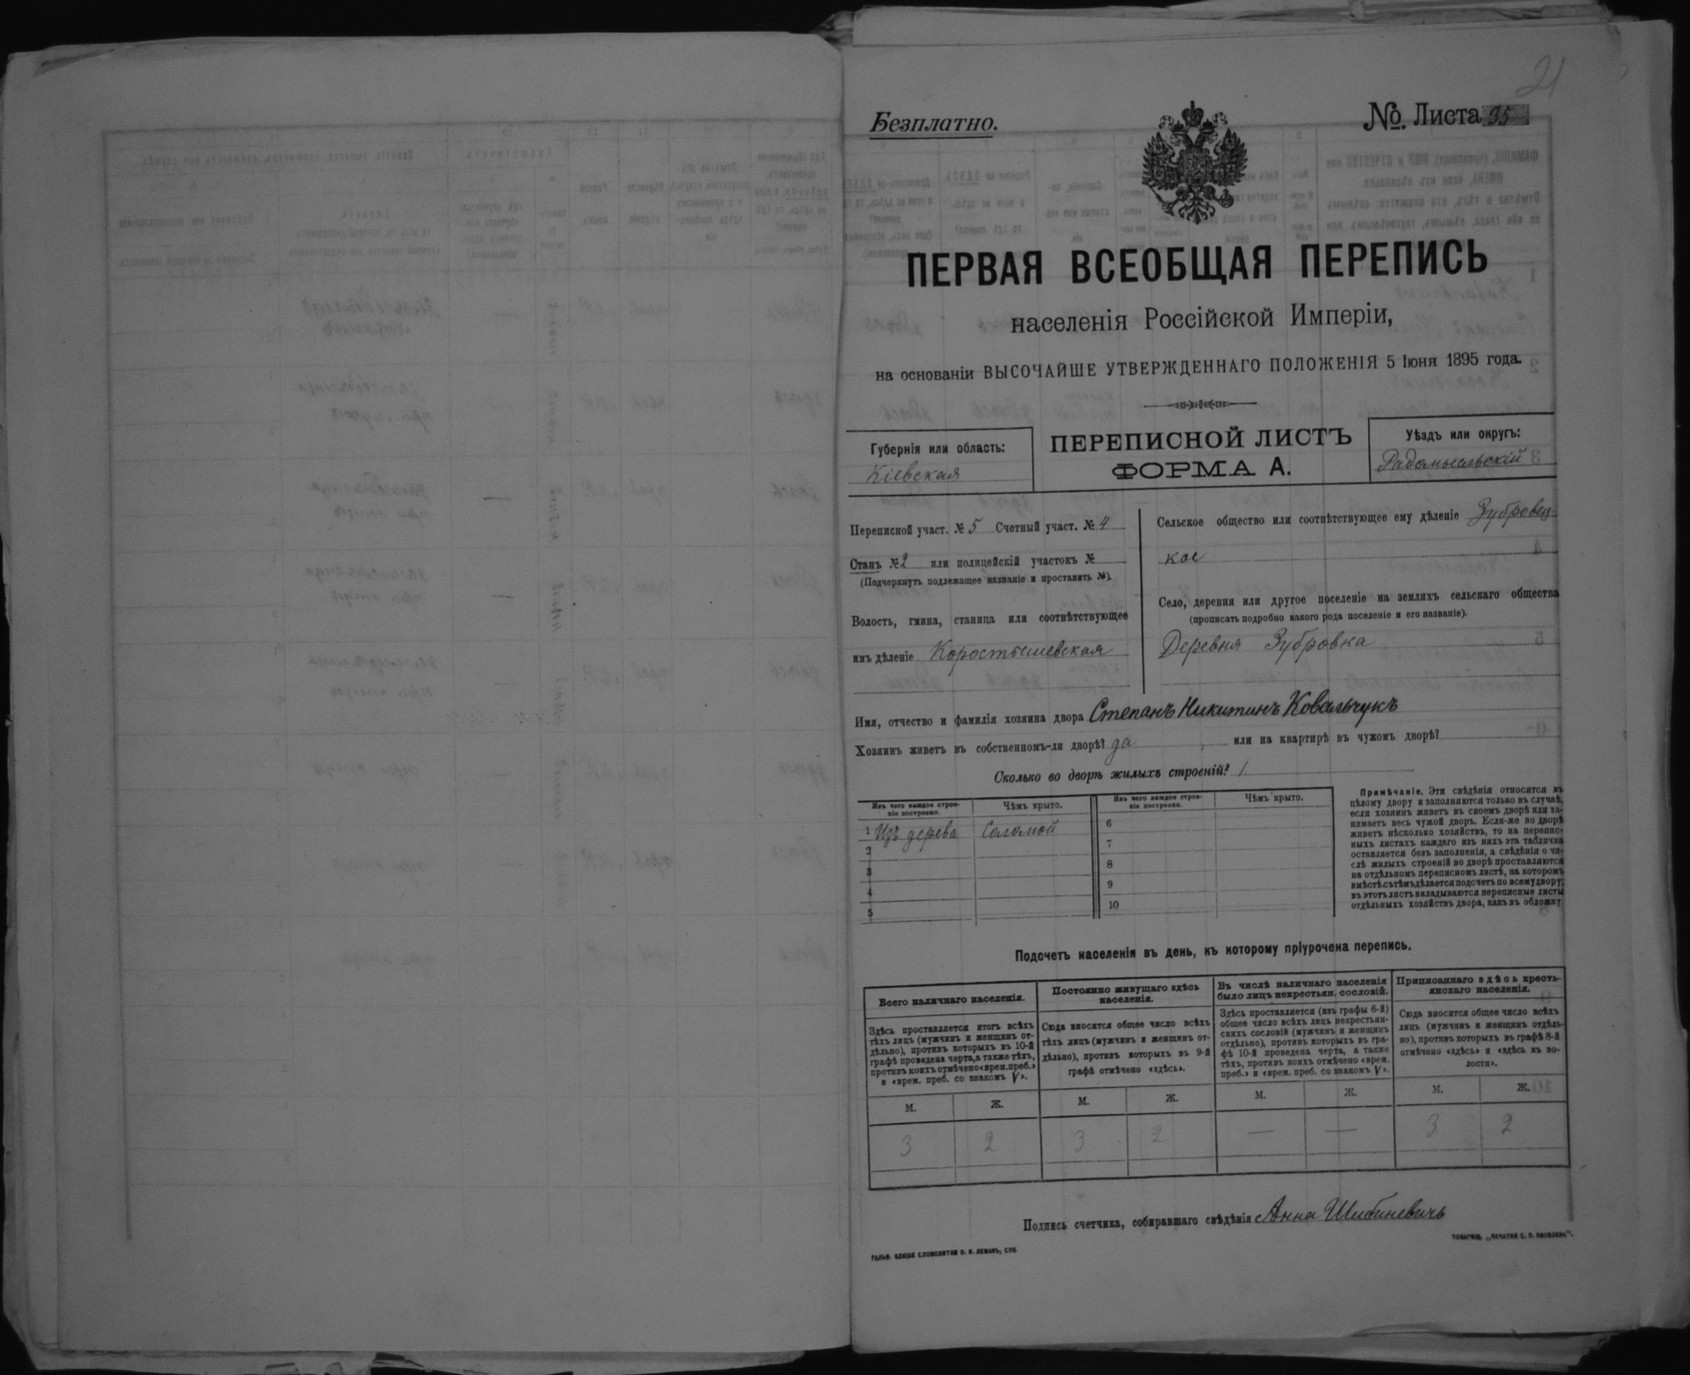 21
Безплатно.
№. Листа 35
ПЕРВАЯ ВСЕОБЩАЯ ПЕРЕПИСЬ
населенія Россійской Имперіи,
на основаніи ВЫСОЧАЙШЕ УТВЕРЖДЕННАГО ПОЛОЖЕНІЯ 5 Іюня 1895 года.
Губернія или область:
Кіевская
ПЕРЕПИСНОЙ ЛИСТЪ
ФОРМА А.
Уѣздъ или округъ:
Радомысльскій
Переписной участ. № 5 Счетный участ. № 4
Станъ № 2 или полицейскій участокъ №
(Подчеркнуть подлежащее названіе и проставить №).
Волость, гмина, станица или соотвѣтствующее
имъ дѣленіе Коростышевская
Сельское общество или соотвѣтствующее ему дѣленіе Зубровец-
кое
Село, деревня или другое поселеніе на земляхъ сельскаго общества
(прописать подробно какого рода поселеніе и его названіе).
Деревня Зубровка
Имя, отчество и фамилія хозяина двора Степанъ Никитинъ Ковальчукъ
Хозяинъ живетъ въ собственномъ-ли дворѣ? да, или на квартирѣ въ чужомъ дворѣ?
Сколько во дворѣ жилыхъ строеній? 1
Изъ чего каждое строе-
ніе построено.
Чѣмъ крыто.
1 Изъ дерева Соломой
2
3
4
5
Изъ чего каждое строе-
ніе построено.
Чѣмъ крыто.
6
7
8
9
10
Примѣчаніе. Эти свѣдѣнія относятся къ
цѣлому двору и заполняются только въ случаѣ,
если хозяинъ живетъ въ своемъ дворѣ или за-
нимаетъ весь чужой дворъ. Если-же во дворѣ
живетъ нѣсколько хозяйствъ, то на перепис-
ныхъ листахъ каждаго изъ нихъ эта табличка
оставляется безъ заполненія, а свѣдѣнія о чи-
слѣ жилыхъ строеній во дворѣ проставляются
на отдѣльномъ переписномъ листѣ, на которомъ
вмѣстѣ съ тѣмъ дѣлается подсчетъ по всему двору;
въ этотъ листъ вкладываются переписные листы
отдѣльныхъ хозяйствъ двора, какъ въ обложку.
Подсчетъ населенія въ день, къ которому пріурочена перепись.
Всего наличнаго населенія.
Здѣсь проставляется итогъ всѣхъ
тѣхъ лицъ (мужчинъ и женщинъ от-
дѣльно), противъ которыхъ въ 10-й
графѣ проведена черта, а также тѣхъ,
противъ коихъ отмѣчено «врем. преб.»
и «врем. преб. со знакомъ V».
М. Ж.
3 2
Постоянно живущаго здѣсь
населенія.
Сюда вносится общее число всѣхъ
тѣхъ лицъ (мужчинъ и женщинъ от-
дѣльно), противъ которыхъ въ 9-й
графѣ отмѣчено «здѣсь».
М. Ж.
3 2
Въ числѣ наличнаго населенія
было лицъ некрестьян. сословій.
Здѣсь проставляется (изъ графы 6-й)
общее число всѣхъ лицъ некрестьян-
скихъ сословій (мужчинъ и женщинъ
отдѣльно), противъ которыхъ въ гра-
фѣ 10-й проведена черта, а также
тѣхъ, противъ коихъ отмѣчено «врем.
преб.» и «врем. преб. со знакомъ V».
М. Ж.
— —
Приписаннаго здѣсь кресть-
янскаго населенія.
Сюда вносится общее число всѣхъ
лицъ (мужчинъ и женщинъ отдѣль-
но), противъ которыхъ въ графѣ 8-й
отмѣчено «здѣсь» и «здѣсь въ во-
лости».
М. Ж.
3 2
Подпись счетчика, собиравшаго свѣдѣнія Анна Шибиневичъ
ГАЛЬВ. КЛИШЕ СЛОВОЛИТНИ О. И. ЛЕМАНЪ, СПБ.